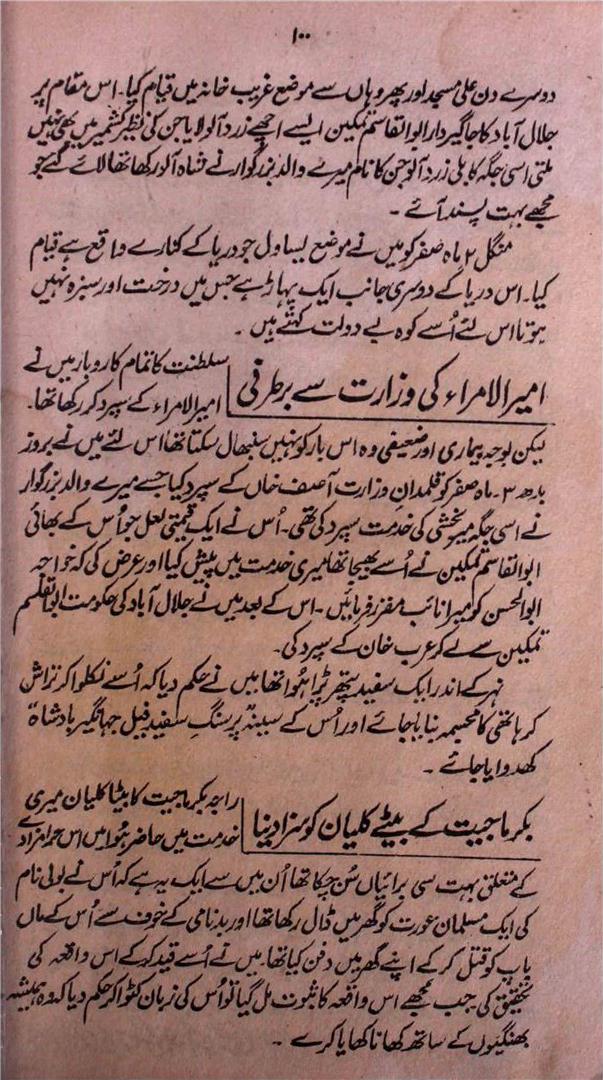 ۱۰۰
دوسرے دن علی مسجد اور پھر وہاں سے موضع غریب خانہ میں قیام کیا۔ اس مقام پر
جلال آباد کا جاگیردار ابوالقاسم نمکین ایسے اچھے زرد آلو لایا جن کی نظیر کشمیر میں بھی نہیں
ملتی اسی جگہ کابلی زرد آلو جن کا نام میرے والد بزرگوار نے شاہ آلو رکھا تھا لائے گئے جو
مجھے بہت پسند آئے۔
منگل ۲ ماہ صفر کو میں نے موضع بساول جو دریا کے کنارے واقع ہے قیام
کیا۔ اس دریا کے دوسری جانب ایک پہاڑ ہے جس میں درخت اور سبزہ نہیں
ہوتا اس لئے اُسے کوہ بے دولت کہتے ہیں۔
امیر الامراء کی وزارت سے برطرفی
سلطنت کا تمام کاروبار میں نے
امیر الامراء کے سپرد کر رکھا تھا۔
لیکن بوجہ بیماری اور ضعیفی وہ اس بار کو نہیں سنبھال سکتا تھا اس لئے میں نے بروز
بدھ ۳۔ ماہ صفر کو قلمدانِ وزارت آصف خاں کے سپرد کیا جسے میرے والد بزرگوار
نے اسی جگہ میر بخشی کی خدمت سپرد کی تھی۔ اُس نے ایک قیمتی لعل جو اُس کے بھائی
ابوالقاسم نمکین نے اُسے بھیجا تھا میری خدمت میں پیش کیا اور عرض کی کہ خواجہ
ابوالحسن کو میرا نائب مقرر فرمائیں۔ اس کے بعد میں نے جلال آباد کی حکومت ابوالقاسم
نمکین سے لے کر عرب خان کے سپرد کی۔
نہر کے اندر ایک سفید پتھر پڑا ہُوا تھا میں نے حکم دیا کہ اُسے نکلوا کر تراش
کر ہاتھی کا مجسمہ بنایا جائے اور اُس کے سینہ پر سنگِ سفید فیل جہانگیر بادشاہ
کھدوایا جائے۔
بکرماجیت کے بیٹے کلیان کو سزا دینا
راجہ بکرماجیت کا بیٹا کلیان میری
خدمت میں حاضر ہُوا میں اس حرامزادے
کے متعلق بہت سی برائیاں سُن چکا تھا اُن میں سے ایک یہ ہے کہ اُس نے بولی نام
کی ایک مسلمان عورت کو گھر میں ڈال رکھا تھا اور بدنامی کے خوف سے اُس کے ماں
باپ کو قتل کر کے اپنے گھر میں دفن کیا تھا۔ میں نے اُسے قید کر کے اس واقعہ کی
تحقیق کی جب مجھے اس واقعہ کا ثبوت مل گیا تو اُس کی زبان کٹوا کر حکم دیا کہ وہ ہمیشہ
بھنگیوں کے ساتھ کھانا کھایا کرے۔